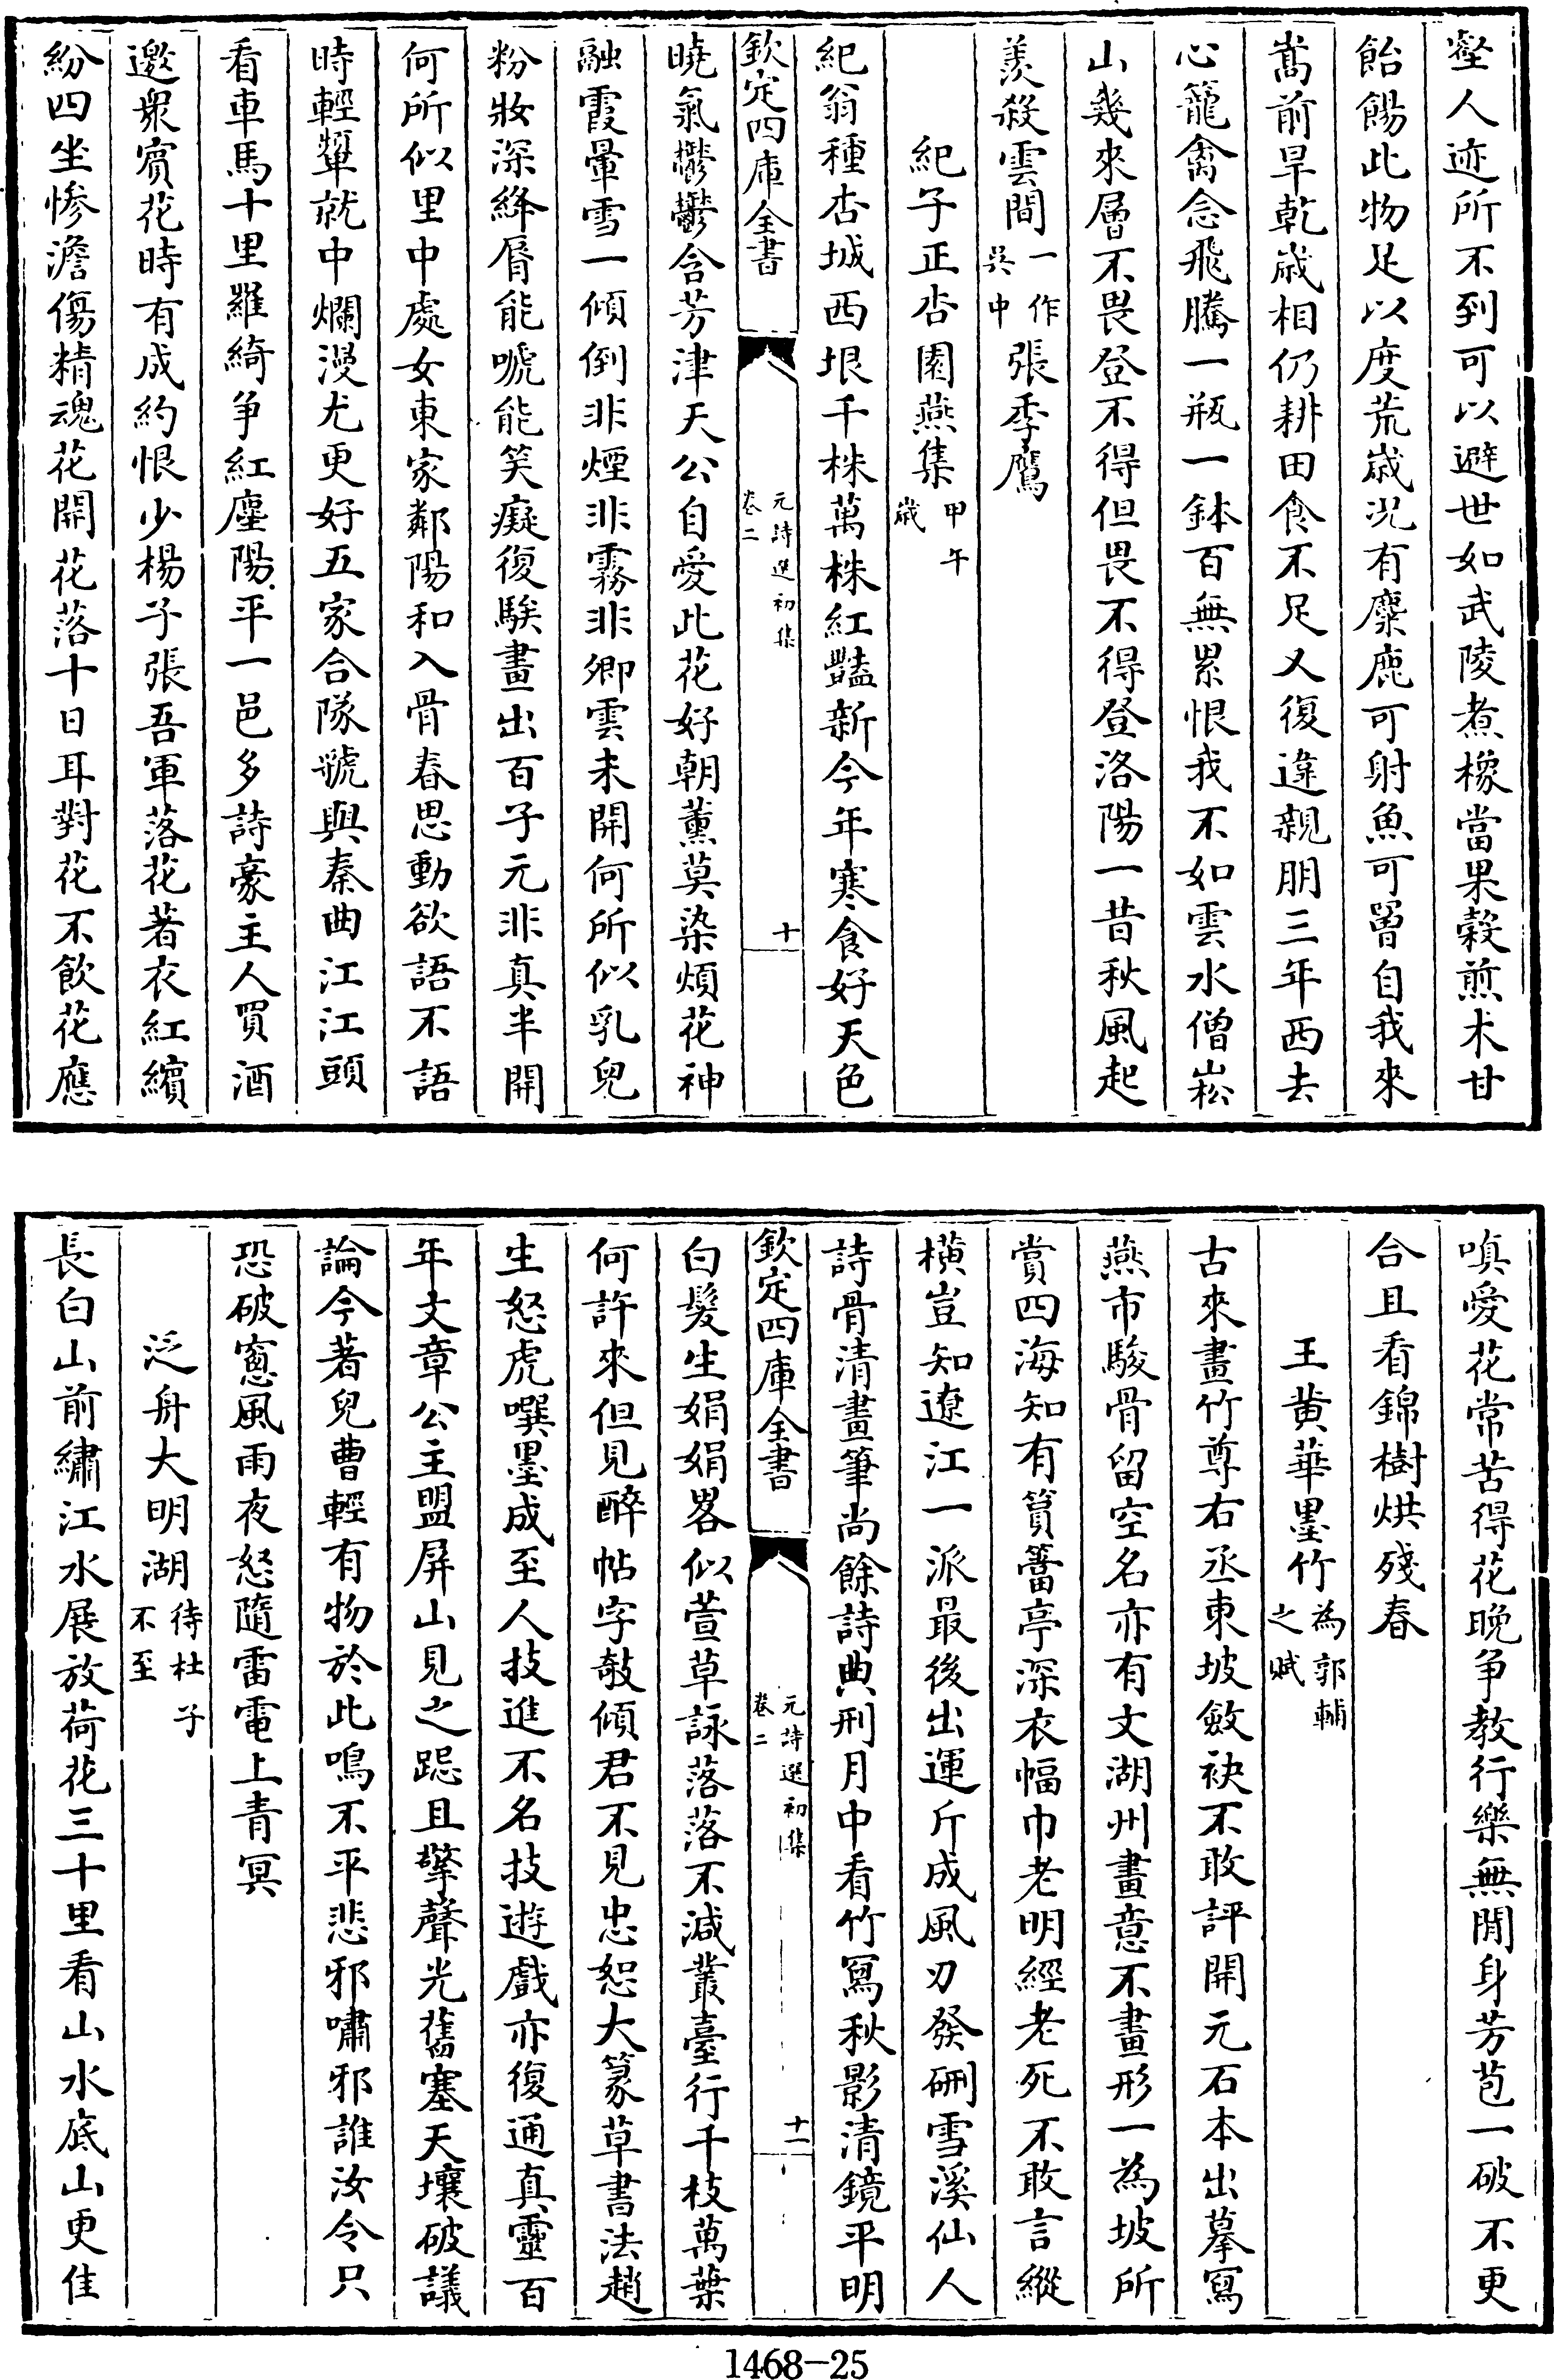 壑人迹所不到可以避世如武陵煮橡當果穀煎术甘
飴餳此物足以度荒歲况有麋鹿可射魚可罾自我來
嵩前旱乾歲相仍耕田食不足又復違親朋三年西去
心籠禽念飛騰一瓶一鉢百無累恨我不如雲水僧崧
山幾來層不畏登不得但畏不得登洛陽一昔秋風起
羨殺雲間一作吳中張季鷹
紀子正杏園燕集甲午歲
紀翁種杏城西垠千株萬株紅豔新今年寒食好天色
欽定四庫全書
元詩選初集
卷二
十
曉氣鬱鬱含芳津天公自愛此花好朝薰莫染煩花神
融霞暈雪一傾倒非煙非霧非卿雲未開何所似乳兒
粉妝深絳脣能嗁能笑癡復騃畫出百子元非真半開
何所似里中處女東家鄰陽和入骨春思動欲語不語
時輕顰就中爛漫尤更好五家合隊虢與秦曲江江頭
看車馬十里羅綺爭紅塵陽平一邑多詩豪主人買酒
邀衆賓花時有成約恨少楊子張吾軍落花著衣紅繽
紛四坐慘澹傷精魂花開花落十日耳對花不飲花應
嗔愛花常苦得花晚爭教行樂無閒身芳苞一破不更
合且看錦樹烘殘春
王黄華墨竹為郭輔之賦
古來畫竹尊右丞東坡斂袂不敢評開元石本出摹寫
燕市駿骨留空名亦有文湖州畫意不畫形一為坡所
賞四海知有篔簹亭深衣幅巾老明經老死不敢言縱
橫豈知遼江一派最後出運斤成風刃發硎雪溪仙人
詩骨清畫筆尚餘詩典刑月中看竹寫秋影清鏡平明
欽定四庫全書
元詩選初集
卷二
十一
白髮生娟娟畧似萱草詠落落不減叢臺行千枝萬葉
何許來但見醉帖字攲傾君不見忠恕大篆草書法趙
生怒虎噀墨成至人技進不名技遊戲亦復通真靈百
年文章公主盟屏山見之跽且擎聲光舊塞天壤破議
論今著兒曹輕有物於此鳴不平悲邪嘯邪誰汝令只
恐破窻風雨夜怒隨雷電上青冥
泛舟大明湖待杜子不至
長白山前繡江水展放荷花三十里看山水底山更佳
1468-25